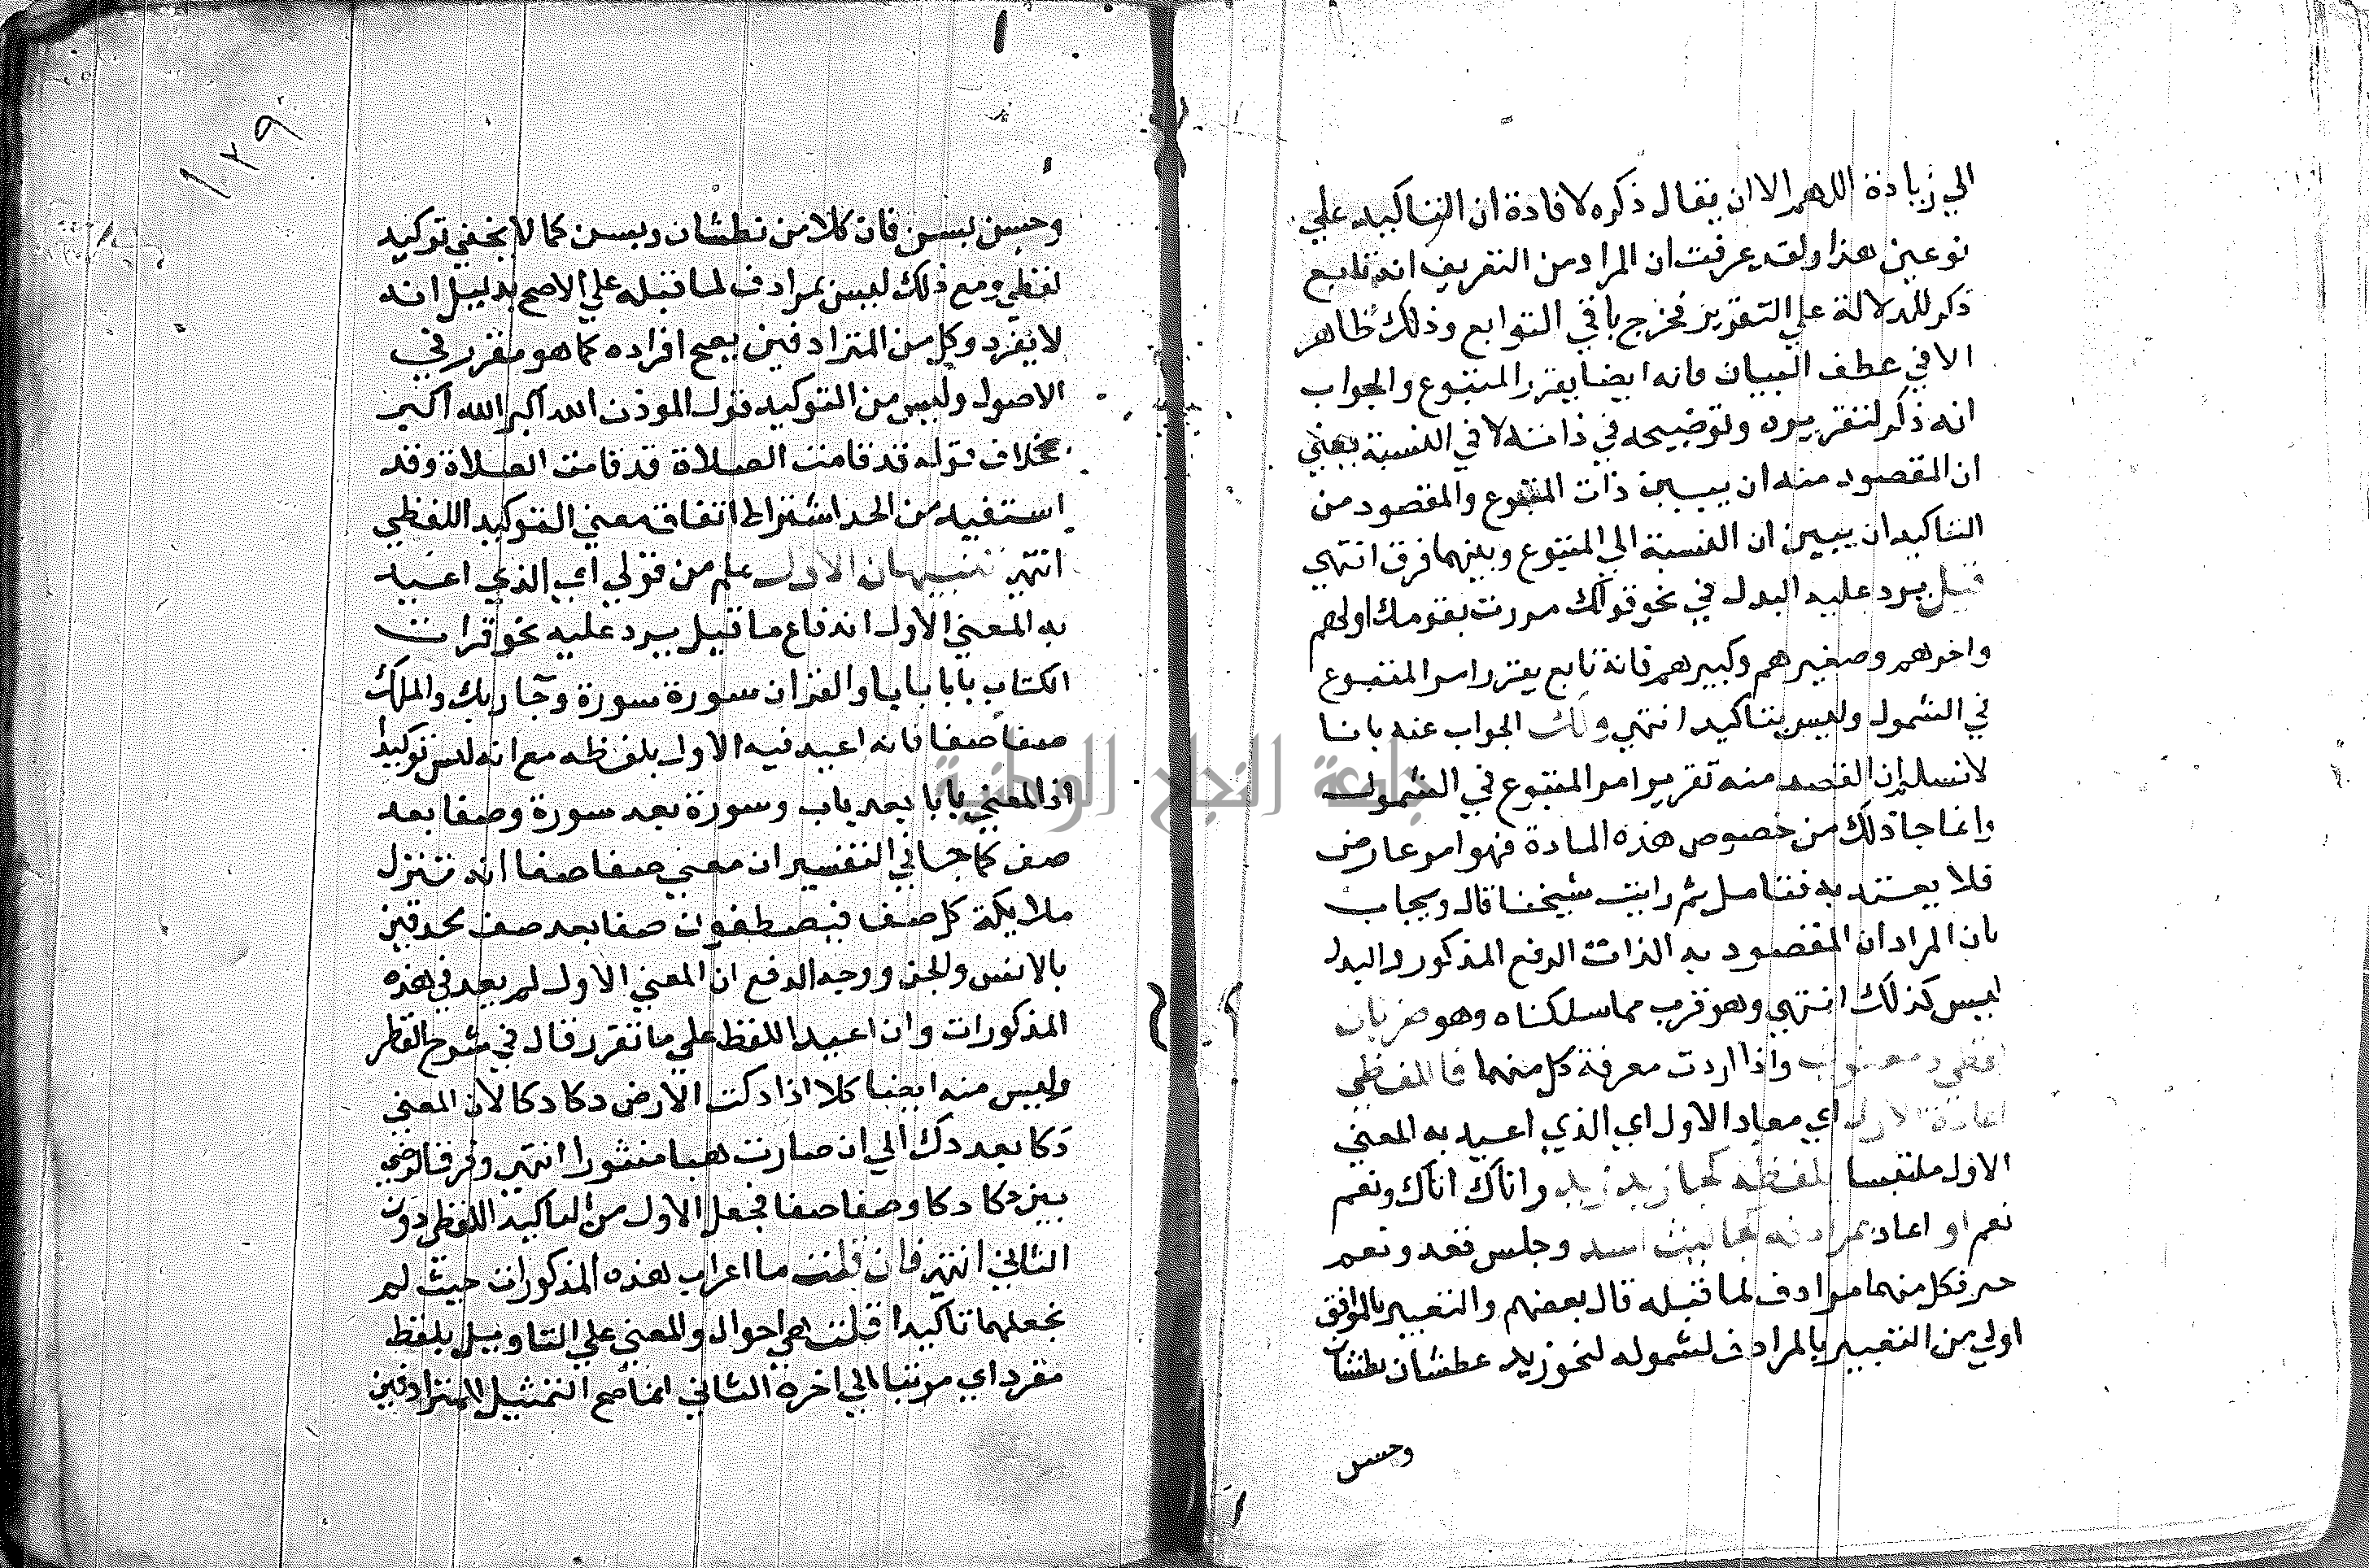 الي زيادة اللهم الا ان يقال ذكره لافادة ان التاكيد علي
نوعين هذا ولقد عرفت ان المراد من التعريف انه تابع
ذكر للدلالة علي التقرير فخرج باقي التوابع وذلك ظاهر
الا في عطف البيان فانه ايضا يقرر المتبوع والجواب
انه ذكر لتقريره وتوضيحه في ذاته لا في النسبة يعني
ان المقصود منه ان يبين ذات المتبوع والمقصود من
التاكيد ان يبين ان النسبة الي المتبوع وبينهما فرق انتهي
قيل يرد عليه البدل في نحو قولك مررت بقومك اولهم
واخرهم وصغيرهم وكبيرهم فانه تابع يقرر امر المتبوع
في الشمول وليس بتاكيد انتهي ولك الجواب عنه بانا
لا نسلم ان القصد منه تقرير امر المتبوع في الشمول
وانما جا ذلك من خصوص هذه المادة فهو امر عارض
فلا يعتد به فتامل ثم رايت شيخنا قال ويجاب
بان المراد ان المقصود به الذات الرفع المذكور والبدل
ليس كذلك انتهي وهو قرب مما سلكناه وهو ضربان
لفظي ومعنوي واذا اردت معرفة كل منهما فاللفظي
اعادة الاول اي معاد الاول اي الذي اعيد به المعني
الاول ملتبسا بلفظه كجا زيد زيد واتاك اتاك ونعم
نعم او اعاد بمرادفه كجا ليث اسد وجلس قعد ونعم
حير فكل منهما مرادف لما قبله قال بعضهم والتعبير بالموافق
اولي من التعبير بالمرادف لشموله لنحو زيد عطشان نطشان
وحسن
١٢٩
وحسن بسن فان كلا من نطشان وبسن كما لا يخفي توكيد
لفظي ومع ذلك ليس بمرادف لما قبله علي الاصح بدليل انه
لا يفرد وكل من المترادفين يصح افراده كما هو مقرر في
الاصول وليس من التوكيد قول الموذن الله اكبر الله اكبر
بخلاف قوله قد قامت الصلاة قد قامت الصلاة وقد
استفيد من الحد اشتراط اتفاق معني التوكيد اللفظي
انتهي تنبيهان الاول علم من قولي اي الذي اعيد
به المعني الاول اندفاع ما قيل يرد عليه نحو قرات
الكتاب بابا بابا والقران سورة سورة وجا ربك والملك
صفا صفا فانه اعيد فيه الاول بلفظه مع انه ليس توكيدا
اذ المعني بابا بعد باب وسورة بعد سورة وصفا بعد
صف كما جا في التفسير ان معني صفا صفا انه تنزل
ملايكة كل صف فيصطفون صفا بعد صف محدقين
بالانس والجن ووجه الدفع ان المعني الاول لم يعد في هذه
المذكورات وان اعيد اللفظ علي ما تقرر قال في شرح القطر
وليس منه ايضا كلا اذا دكت الارض دكا دكا لان المعني
دكا بعد دك الي ان صارت هبا منثورا انتهي وفرق الرضي
بين دكا دكا وصفا صفا فجعل الاول من التاكيد اللفظي دون
الثاني انتهي فان قلت ما اعراب هذه المذكورات حيث لم
نجعلها تاكيدا قلت هي احوال والمعني علي التاويل بلفظ
مفرد اي مرتبا الي اخره الثاني انما صح التمثيل للمترادفين
جامعة النجاح الوطنية